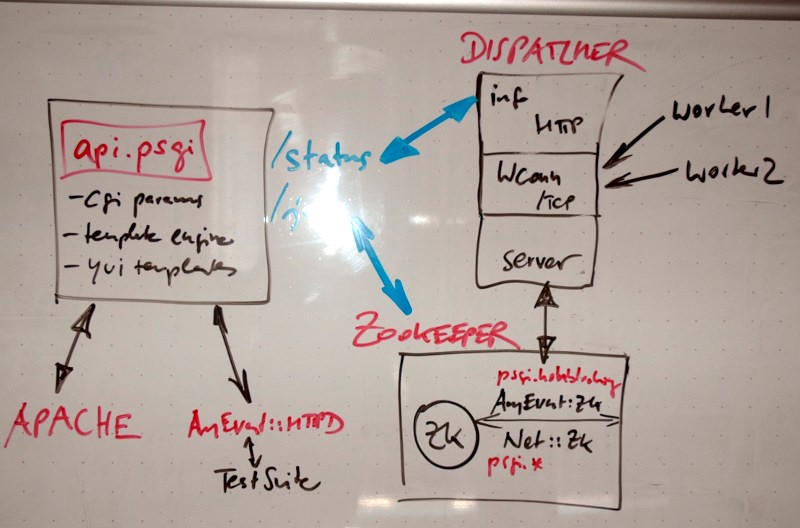 DISPATCHER
api.psgi
- Cgi params
- template engine
- yui templates
/status
/j
inf
HTTP
WConn
/TCP
server
Worker1
Worker2
ZOOKEEPER
psgi.nonblocking
AnyEvent::Zk
ZK
Net::Zk
psgi.*
APACHE
AnyEvent::HTTPD
TestSuite